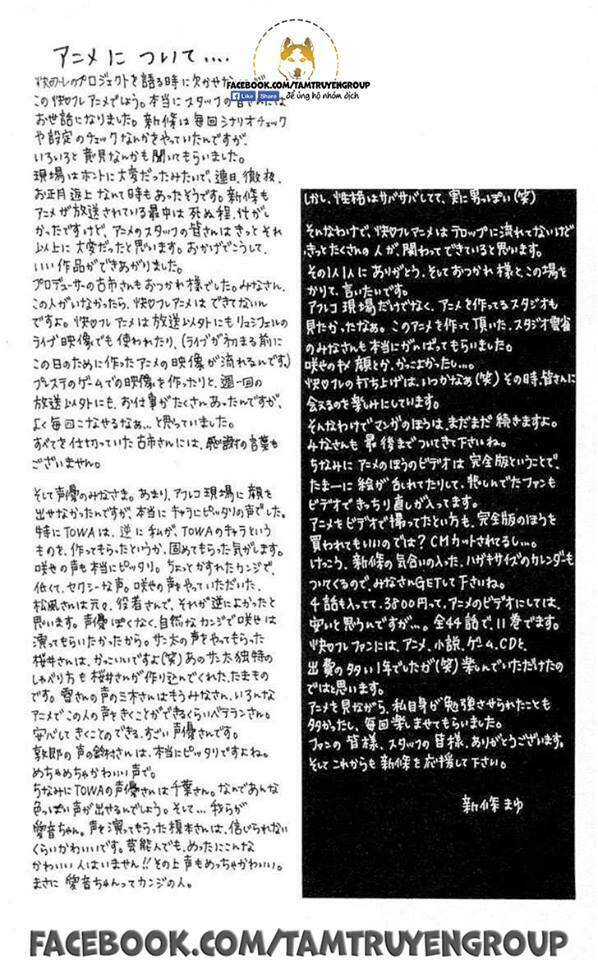 アニメについて....
FACEBOOK.COM/TAMTRUYENGROUP
Like Share để ủng hộ nhóm dịch
快♡フレのプロジェクトを語る時に欠かせない
この快♡フレアニメでしょう。本当にスタッフの皆さんには
お世話になりました。新條は毎回シナリオチェック
や設定のチェックなんかをやっていたんですが、
いろいろと意見なんかも聞いてもらいました。
現場はホントに大変だったみたいで、連日、徹夜、
お正月返上なんて時もあったそうです。新條も
アニメが放送されている最中は死ぬ程、忙がし
かったですけど、アニメのスタッフの皆さんはきっとそれ
以上に大変だったと思います。おかげでこうして、
いい作品ができあがりました。
プロデューサーの古市さんもおつかれ様でした。みなさん、
この人がいなかったら、快♡フレアニメはできてないん
ですよ。快♡フレアニメは放送以外にもリュシフェルの
ライブ映像でも使われたり、(ライブが初まる前に
この日のために作ったアニメの映像が流れるんです。)
プレステのゲームでの映像を作ったりと、週一回の
放送以外にも、お仕事がたくさんあったんですが、
よく毎回こなせるなぁ…と思っていました。
すべてを仕切っていた古市さんには、感謝の言葉も
ございません。
そして声優のみなさま。あまり、アフレコ現場に顔を
出せなかったんですが、本当にキャラにピッタリの声でした。
特にTOWAは、逆に私が、TOWAのキャラという
ものを、作ってもらったというか、固めてもらった気がします。
咲也の声も本当にピッタリ。ちょっとかすれたカンジで、
低くて、セクシーな声。咲也の声をやっていただいた、
松風さんは元々、役者さんで、それが逆によかったと
思います。声優ぽくなく、自然なカンジで咲也は
演ってもらいたかったから。サン太の声をやってもらった
櫻井さんは、かっこいいですよ(笑)あのサン太独特の
しゃべり方も櫻井さんが作り込んでくれた、たまもの
です。雪さんの声の三木さんはもうみなさん、いろんな
アニメでこの人の声をきくことができるくらいベテランさん。
安心してきくことのできる、すごい声優さんです。
敦郎の声の鈴村さんは、本当にピッタリですよね。
めちゃめちゃかわいい声で。
ちなみにTOWAの声優さんは千葉さん。なんであんな
色っぽい声が出せるんでしょう。そして…我らが
愛音ちゃん。声を演ってもらった榎本さんは、信じられない
くらいかわいいです。芸能人でも、めったにこんな
かわいい人はいません!!その上声もめっちゃかわいい。
まさに愛音ちゃんってカンジの人。
しかし、性格はサバサバしてて、実に男っぽい(笑)
そんなわけで、快♡フレアニメはテロップに流れてないけど
きっとたくさんの人が、関わってできていると思います。
その1人1人にありがとう、そしておつかれ様とこの場を
かりて、言いたいです。
アフレコ現場だけでなく、アニメを作ってるスタジオも
見たかったなぁ。このアニメを作って頂いた、スタジオ雲雀
のみなさんも本当にがんばってもらいました。
咲也のキメ顔とか、かっこよかったし…。
快♡フレの打ち上げは、いつかなぁ(笑)その時、皆さんに
会えるのを楽しみにしています。
そんなわけでマンガのほうは、まだまだ続きますよ。
みなさんも最後までついてきて下さいね。
ちなみにアニメのほうのビデオは完全版ということで、
たまーに絵が乱れてたりして、悲しんでたファンも
ビデオできっちり直しが入ってます。
アニメをビデオで撮ってたという方も、完全版のほうを
買われてもいいのでは?CMカットされてるし…。
けっこう、新條の気合いの入った、ハガキサイズのカレンダーも
ついてくるので、みなさんGETして下さいね。
4話も入ってて、3800円って、アニメのビデオにしては、
安いと思うんですが…。全44話で、11巻でます。
快♡フレファンには、アニメ、小説、ゲーム、CDと、
出費の多い1年でしたが(笑)楽しんでいただけたの
ではと思います。
アニメを見ながら、私自身が勉強させられたことも
多かったし、毎回楽しませてもらいました。
ファンの皆様、スタッフの皆様、ありがとうございます。
そしてこれからも新條を応援して下さい。
新條まゆ
FACEBOOK.COM/TAMTRUYENGROUP